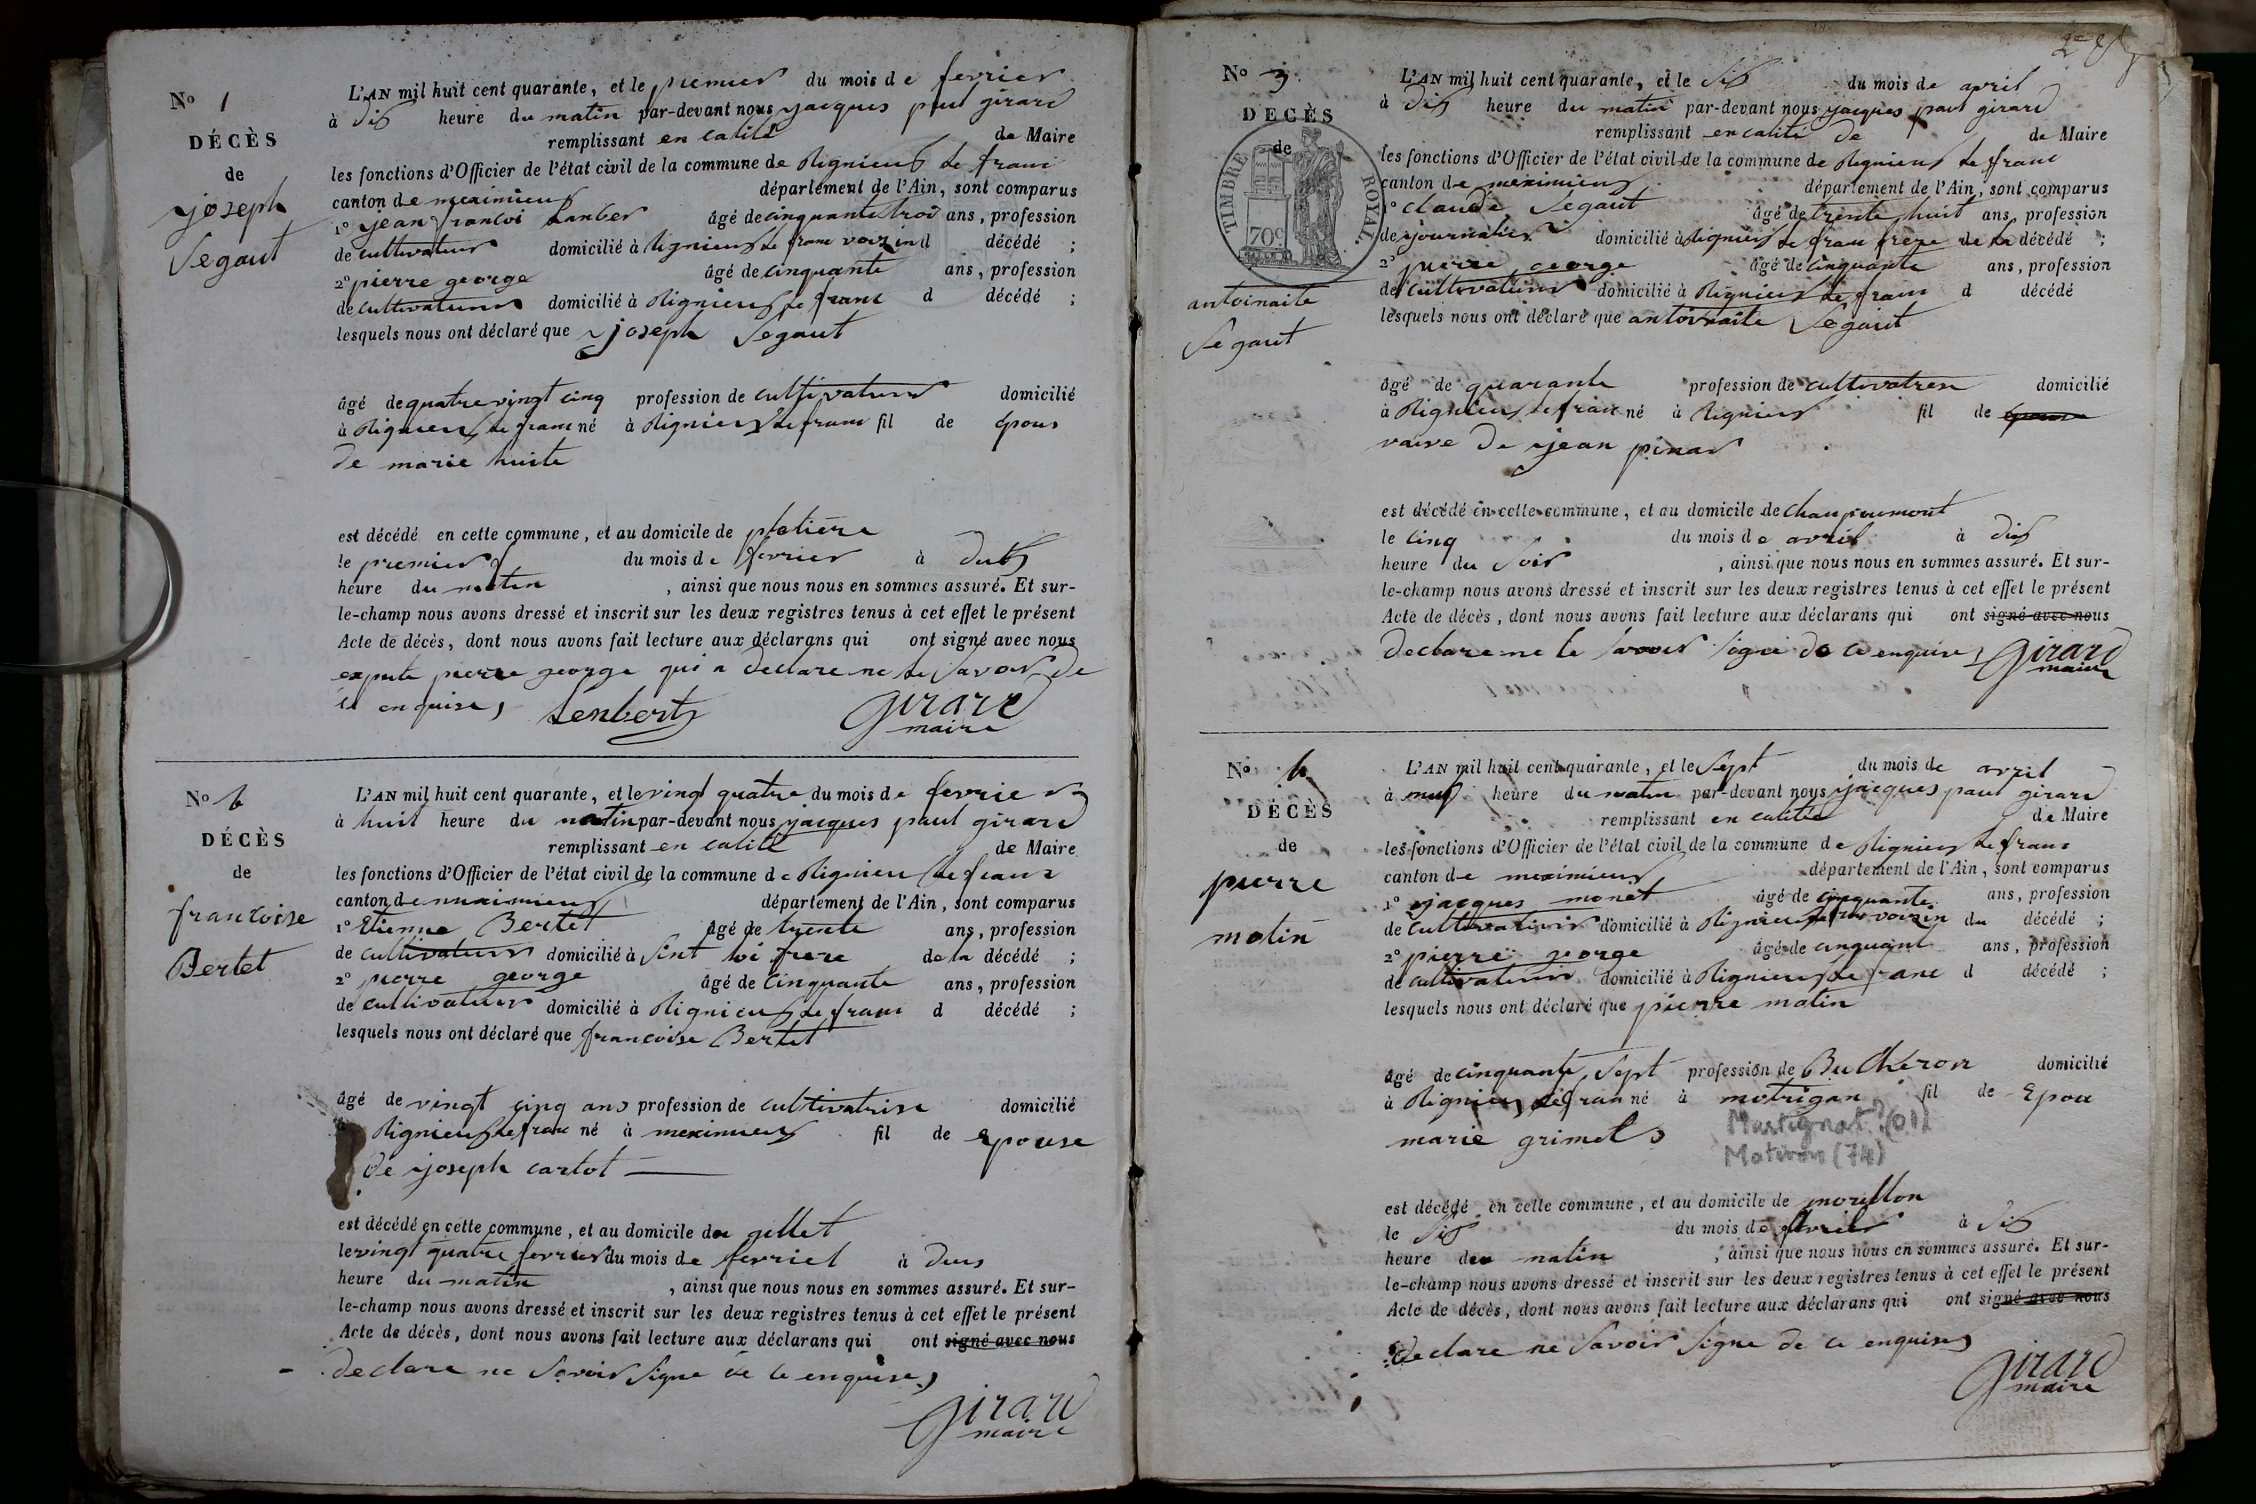 No 1
DÉCÈS
de
joseph
Segaut
L'AN mil huit cent quarante, et le premier du mois de fevrier
à dix heure du matin par-devant nous jacques paul girard
remplissant en calité de Maire
les fonctions d'Officier de l'état civil de la commune de Rignieux le franc
canton de meximieux département de l'Ain, sont comparus
1º jean francoi Lanber âgé de cinquante troi ans, profession
de cultivateur domicilié à Rignieux le franc voizin d décédé ;
2º pierre george âgé de cinquante ans, profession
de cultivateur domicilié à Rignieux le franc d décédé ;
lesquels nous ont déclaré que joseph Segaut
âgé de quatre vingt cinq profession de cultivateur domicilié
à Rignieux le franc né à Rignieux le franc fil de epous
de marie huite
est décédé en cette commune, et au domicile de platière
le premier du mois de fevrier à
heure du matin , ainsi que nous nous en sommes assuré. Et sur-
le-champ nous avons dressé et inscrit sur les deux registres tenus à cet effet le présent
Acte de décès, dont nous avons fait lecture aux déclarans qui ont signé avec nous
expete pierre george qui a declare ne le savoir de
ce enquise, Lenbert girard
maire
No
DÉCÈS
de
francoise
Bertet
L'AN mil huit cent quarante, et le vingt quatre du mois de fevrie
à huit heure du matin par-devant nous jacques paul girard
remplissant en calité de Maire
les fonctions d'Officier de l'état civil de la commune de Rignieu le franc
canton de meximieux département de l'Ain, sont comparus
1º Etienne Bertet âgé de trente ans, profession
de cultivateur domicilié à Sint loi frere de la décédé ;
2º pierre george âgé de cinquante ans, profession
de cultivateur domicilié à Rignieux le franc d décédé ;
lesquels nous ont déclaré que francoise Bertet
âgé de vingt cinq ans profession de cultivatrise domicilié
Rignieux le franc né à meximieux fil de epouse
de joseph cartot
est décédé en cette commune, et au domicile du gillet
le vingt quatre fevrier du mois de fevriel à deus
heure du matin , ainsi que nous nous en sommes assuré. Et sur-
le-champ nous avons dressé et inscrit sur les deux registres tenus à cet effet le présent
Acte de décès, dont nous avons fait lecture aux déclarans qui ont signé avec nous
declare ne savoir signe de ce enquise,
girard
maire
No 3
DÉCÈS
de
TIMBRE ROYAL
70c
antoinaite
Segaut
L'AN mil huit cent quarante, et le six du mois de april
à dix heure du matin par-devant nous jacques paul girard
remplissant en calité de de Maire
les fonctions d'Officier de l'état civil de la commune de Rignieux le franc
canton de meximieux département de l'Ain, sont comparus
1º claude Segaut âgé de trente huit ans, profession
de journalier domicilié à Rignieux le franc frere de la décédé ;
2º pierre george âgé de cinquante ans, profession
de cultivateur domicilié à Rignieux le franc d décédé
lesquels nous ont déclaré que antoinaite Segaut
âgé de quarante profession de cultivatrese domicilié
à Rignieux le franc né à Rignieux fil de epouse
vaive de jean pinar
est décédé en cette commune, et au domicile de chanpoumont
le cinq du mois de avril à dix
heure du soir , ainsi que nous nous en sommes assuré. Et sur-
le-champ nous avons dressé et inscrit sur les deux registres tenus à cet effet le présent
Acte de décès, dont nous avons fait lecture aux déclarans qui ont signé avec nous
declare ne le savoir signé de ce enquise girard
maire
No
DÉCÈS
de
pierre
matin
L'AN mil huit cent quarante, et le sept du mois de avril
à neuf heure du matin par-devant nous jacques paul girard
remplissant en calité de Maire
les fonctions d'Officier de l'état civil de la commune de Rignieux le franc
canton de meximieux département de l'Ain, sont comparus
1º jacques monet âgé de cinquante ans, profession
de cultivateur domicilié à Rignieux le franc voizin du décédé ;
2º pierre george âgé de cinquant ans, profession
de cultivateur domicilié à Rignieux le franc d décédé ;
lesquels nous ont déclaré que pierre matin
âgé de cinquante sept profession de Bucheron domicilié
à Rignieux le franc né à motrigan fil de Epou
marie grimet
Martignat ? (01)
Motivon (74)
est décédé en cette commune, et au domicile de morillon
le six du mois de avril à six
heure du matin , ainsi que nous nous en sommes assuré. Et sur-
le-champ nous avons dressé et inscrit sur les deux registres tenus à cet effet le présent
Acte de décès, dont nous avons fait lecture aux déclarans qui ont signé avec nous
declare ne savoir signe de ce enquise
girard
maire